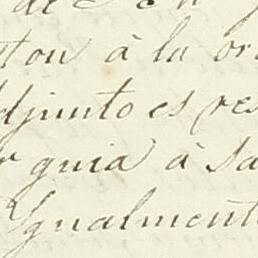 de
ton à la or
djunto es res
r guia à sa
Ygualment